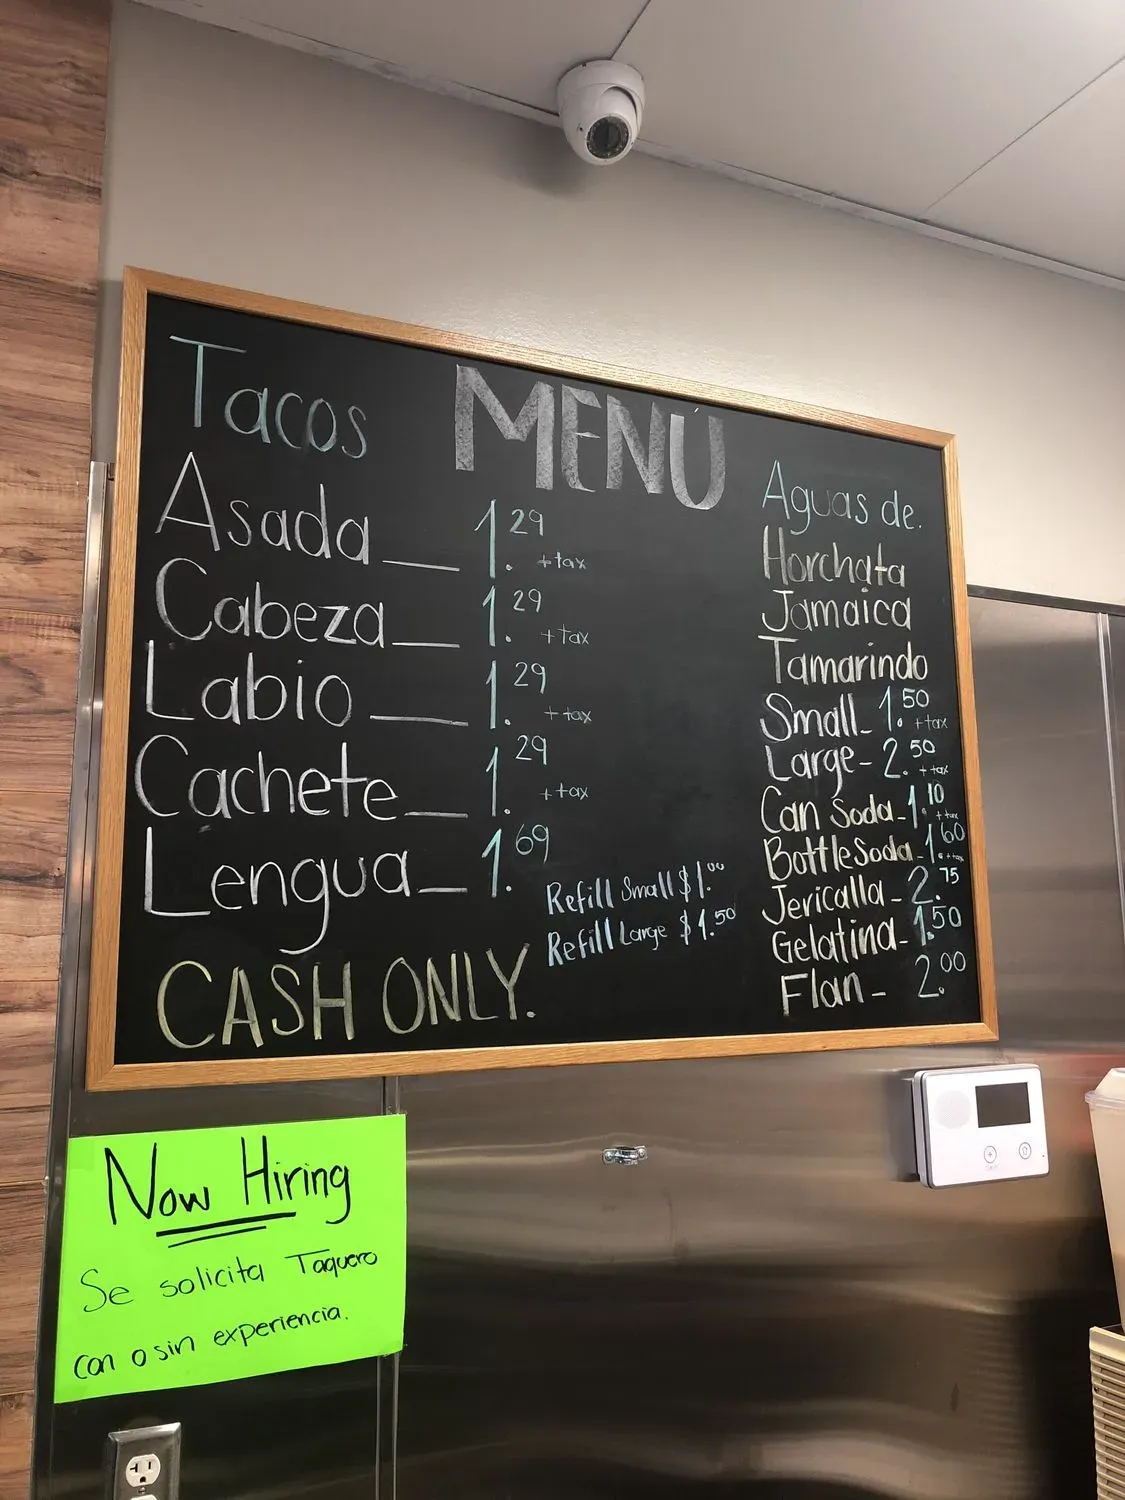 MENÚ
Tacos
Asada__ 1.29 +tax
Cabeza__ 1.29 +tax
Labio__ 1.29 +tax
Cachete__ 1.29 +tax
Lengua__ 1.69
Refill Small $1.00
Refill Large $1.50
CASH ONLY.
Aguas de.
Horchata
Jamaica
Tamarindo
Small- 1.50 +tax
Large- 2.50 +tax
Can Soda- 1.10 +tax
Bottle Soda- 1.60 +tax
Jericalla- 2.75
Gelatina- 1.50
Flan- 2.00
Now Hiring
Se solicita Taquero
con o sin experiencia.